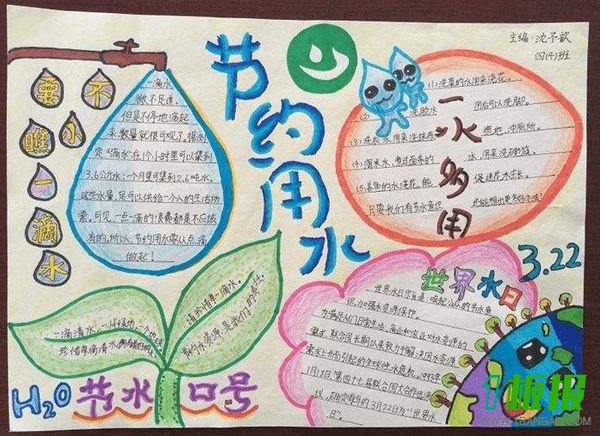 主编：沈予歆
四(4)班
节约用水
莫
不
瞧
小
一
滴
水
一滴水
微不足道
但是不停地滴起
来，数量就很可观了。据测
定"滴水"在1个小时里可以集到
3.6公斤水；1个月里可集到2.6吨水。
这些水量，足可以供给一个人的生活所
需。可见，一点一滴的浪费都是不应该
有的。所以，节约用水要从点滴
做起！
一水多用
(1)洗菜的水用来浇花。
(2)洗脸水用后可以洗脚。
(3)洗衣水用来洗拖把、拖地、冲厕所。
(4)淘米水、煮过面条的水，用来洗碗筷。
(5)养鱼的水浇花，能促进花木生长。
只要我们有节水意识，就能想出更多好办法！
3.22
世界水日
世界水日宗旨是唤起公众的节水意
识，加强水资源保护。
为满足人们日常生活、商业和农业对水资源的
需求，联合国长期以来致力于解决因水资源
需求上升而引起的全球性水危机。1993年
1月18日，第四十七届联合国大会作出决
议，确定每年的3月22日为"世界水
日"。
一滴清水，一片绿地，一个地球
珍惜每滴清水
请珍惜每一滴水。
节约水资源，是我们的责任。
H2O 节水口号
板报